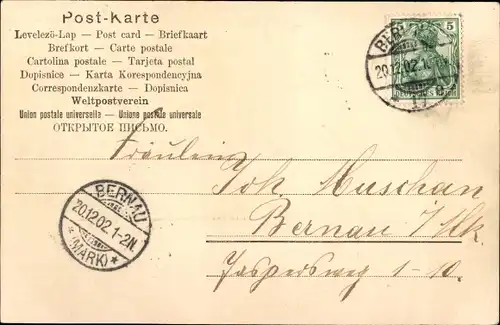 Post-Karte
Levelezö-Lap — Post card — Briefkaart
Brefkort — Carte postale
Cartolina postale — Tarjeta postal
Dopisnice — Karta Korespondencyjna
Correspondenzkarte — Dopisnica
Weltpostverein
Union postale universelle — Unione postale universale
ОТКРЫТОЕ ПИСЬМО.
5
20.12.02.1-2N
Fräulein
Joh. Muschan
Bernau i/Mk
Jaspersweg 1-10.
BERNAU
20.12.02.1-2N
* (MARK) *